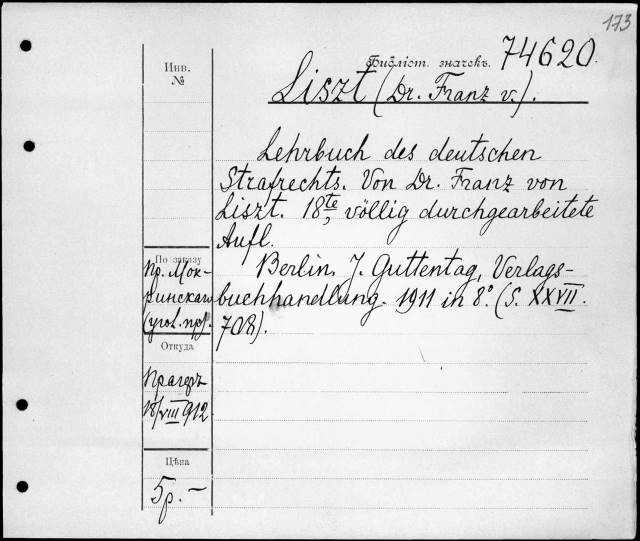 173
Библіот. значекъ. 74620.
Liszt (Dr. Franz v.).
Инв.
№
Lehrbuch des deutschen
Strafrechts. Von Dr. Franz von
Liszt. 18te, völlig durchgearbeitete
Aufl.
Berlin. J. Guttentag, Verlags-
buchhandlung. 1911 in 8°. (S. XXVII.
708).
По заказу
пр. Мок-
ринскаго
(угол. пр).
Откуда
Прагеръ
18/VIII 912
Цѣна
5р. –